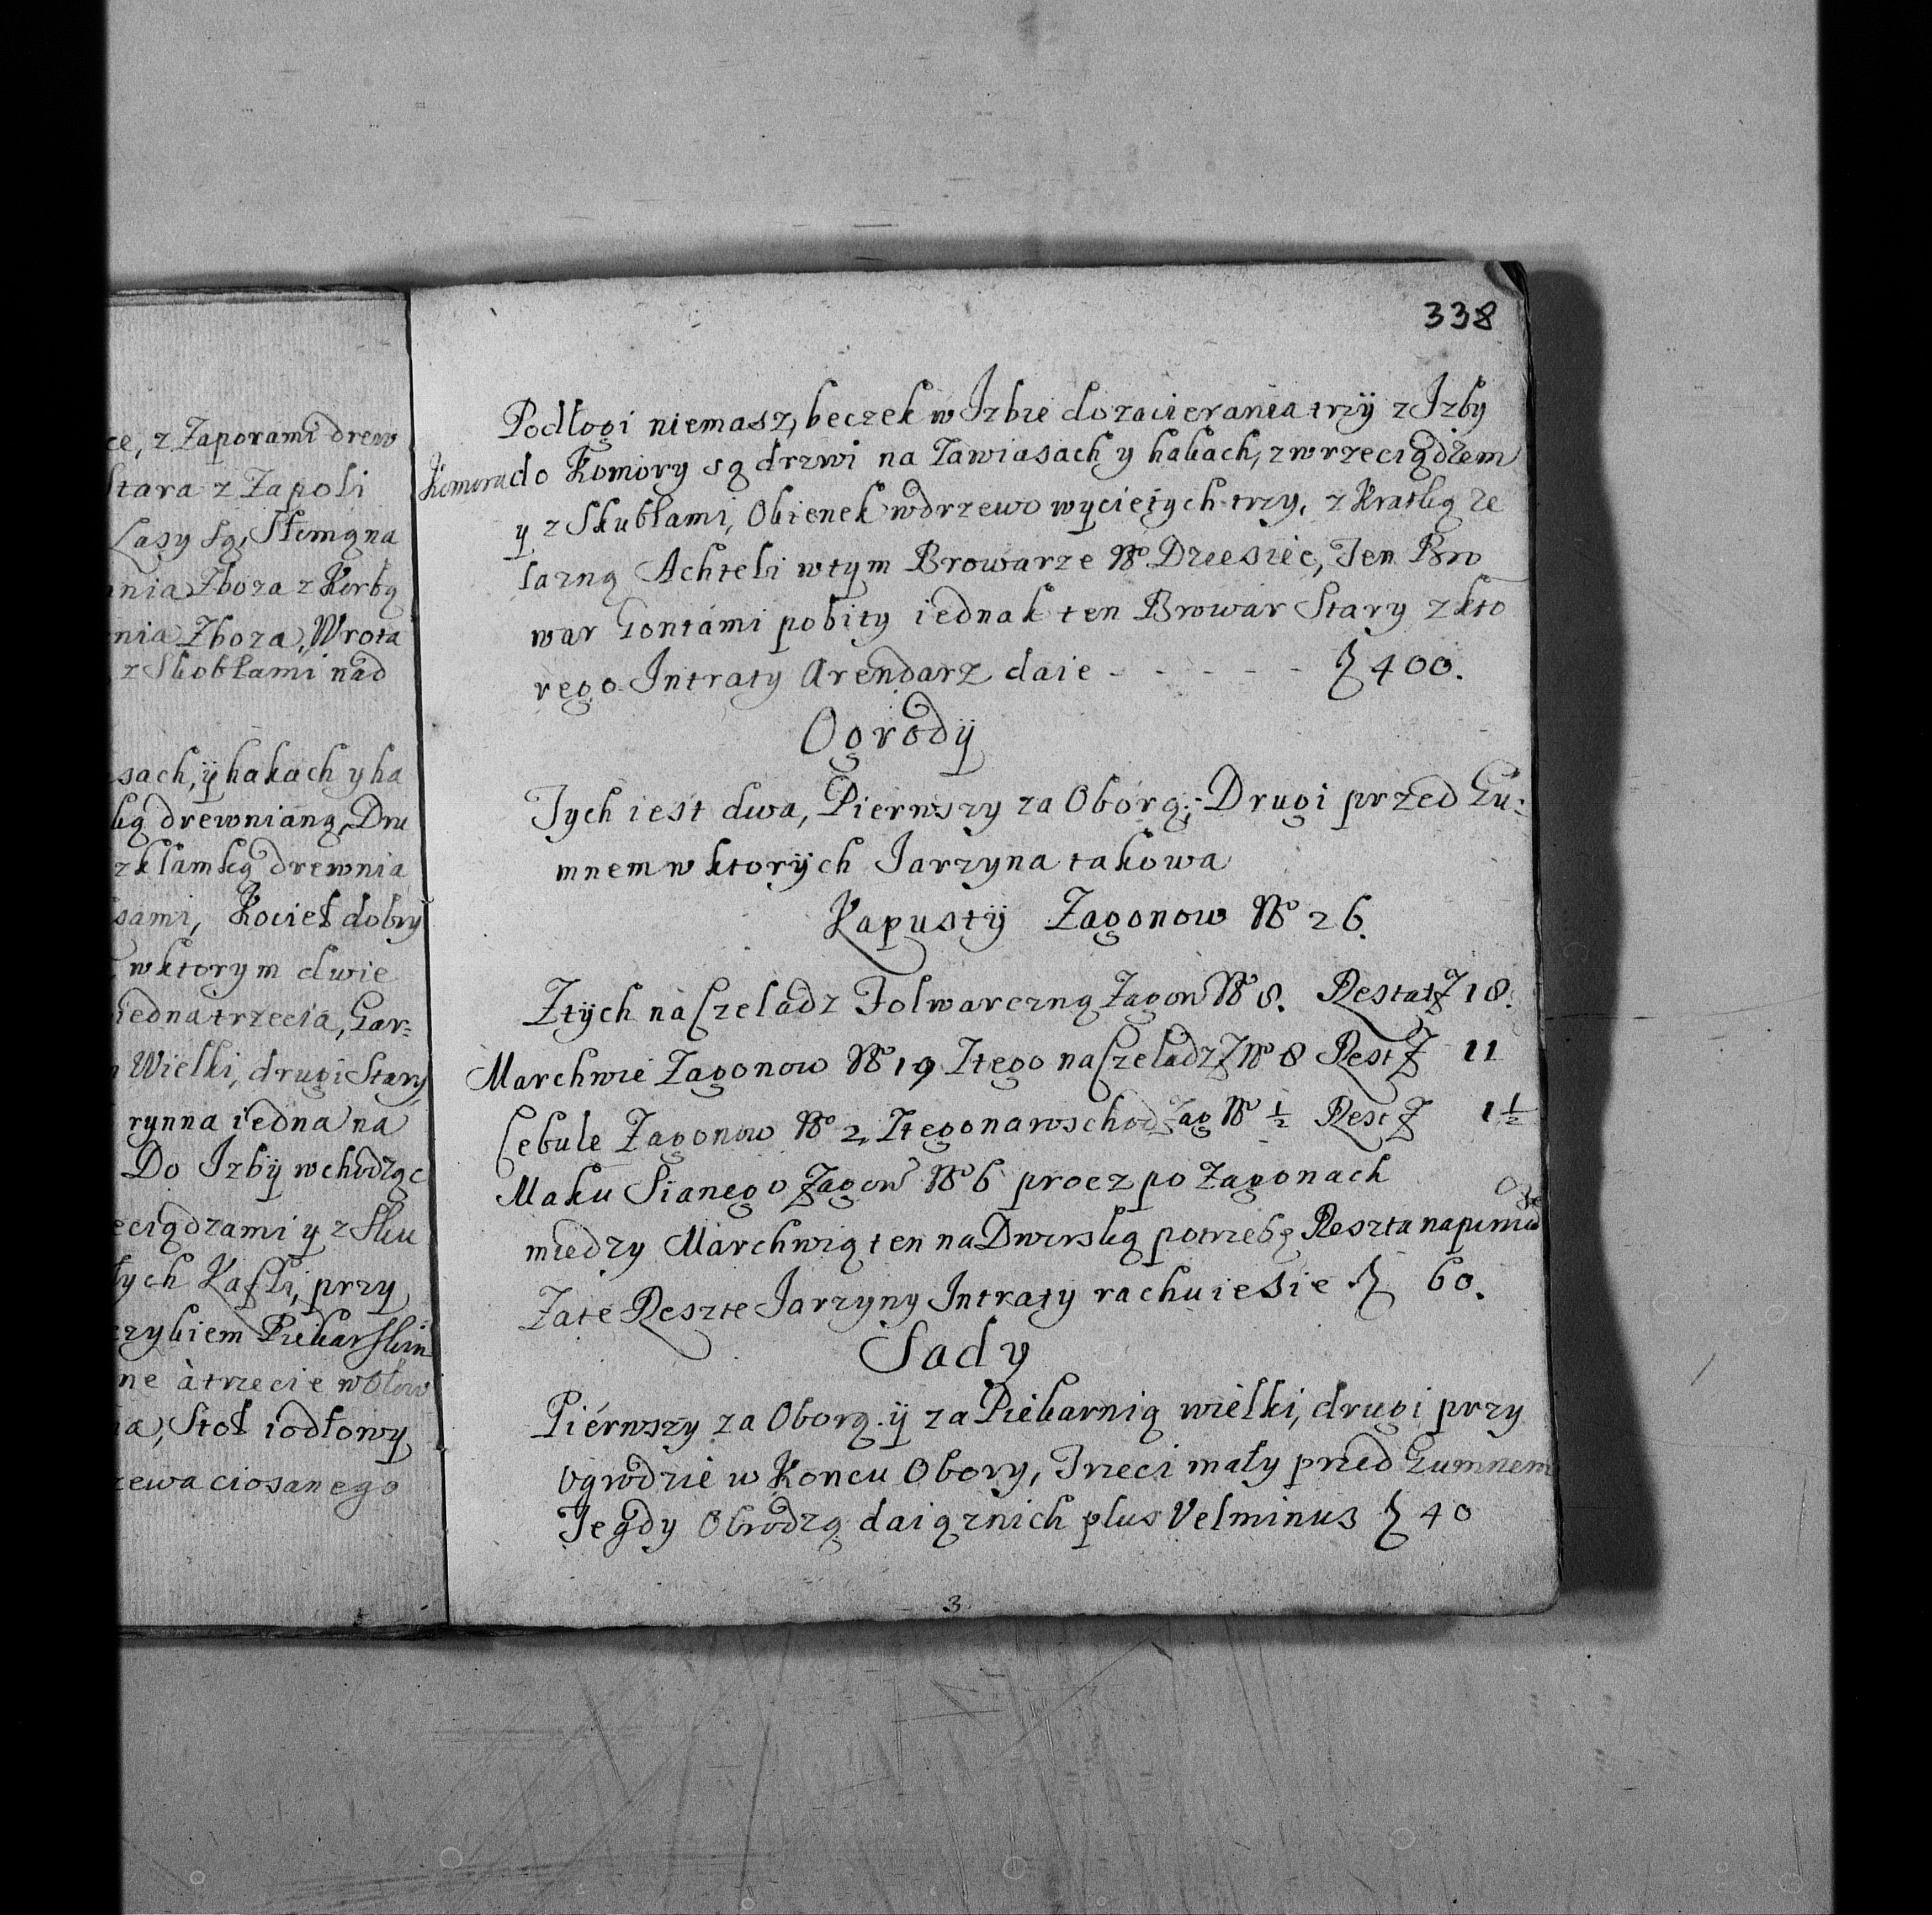 ce, z Zaporami drew
Stara z Zapoli
Lasy są, Słemę na
nia Zboza z Korbą
nia Zboza, Wrota
z Skobłami nad
sach, ÿ hakach y ha
ką drewnianą, Dru
z klamką drewnia
sami, Kocieł dobry
w ktorym dwie
iedna trzecia, Gar=
Wielki, drugi Stary
rynna iedna na
Do Izbÿ wchodząc
eciądzami y z Sku
łych Kafli, przy
czykiem Piekarskim
ne à trzecie w Ołow
na, Stoł iodłowy
rzewa ciosanego
338
Podłogi niemasz, beczek w Izbie do zacierania trzÿ z Izby
Komora do Komory są drzwi na Zawiasach y hakach, z wrzeciądzem
y z Skubłami, Okienek w drzewo wyciętych trzy, z Kratką że
lazną Achteli w tym Browarze No Dziesięc, Ten Bro
war Gontámi pobity iednak ten Browar Stary z kto
rego Intraty Arendarz daie - - - - - - ƶ 400.
Ogrodÿ
Tych iest dwa, Pierwszy za Oborą;- Drugi przed Gu=
mnem w ktorÿch Jarzyna takowa
Kapustÿ Zagonow No 26.
Z tÿch ná Czeladz Folwarczną Zagon No 8. Restat Z 18.
Marchwie Zagonow No 19 Z tego na Czeladz Z No 8 Rest Z 11
Cebule Zagonow No 2, Z tego na wschod Zag No ½ Rest Z 1½
Maku Sianego Zagow No 6 procz po Zagonach
miedzy Marchwią ten na Dworską potrzebę Reszta na
Za te Reszte Jarzyny Intraty rachuie sie ƶ 60.
Sady
Piérwszy za Oborą ÿ za Piekarnią wielki, drugi przy
Ogrodzie w Koncu Obory, Trzeci mały przed Gumnem
Te gdy Obrodzą daią z nich plus Vel minus ƶ 40
3